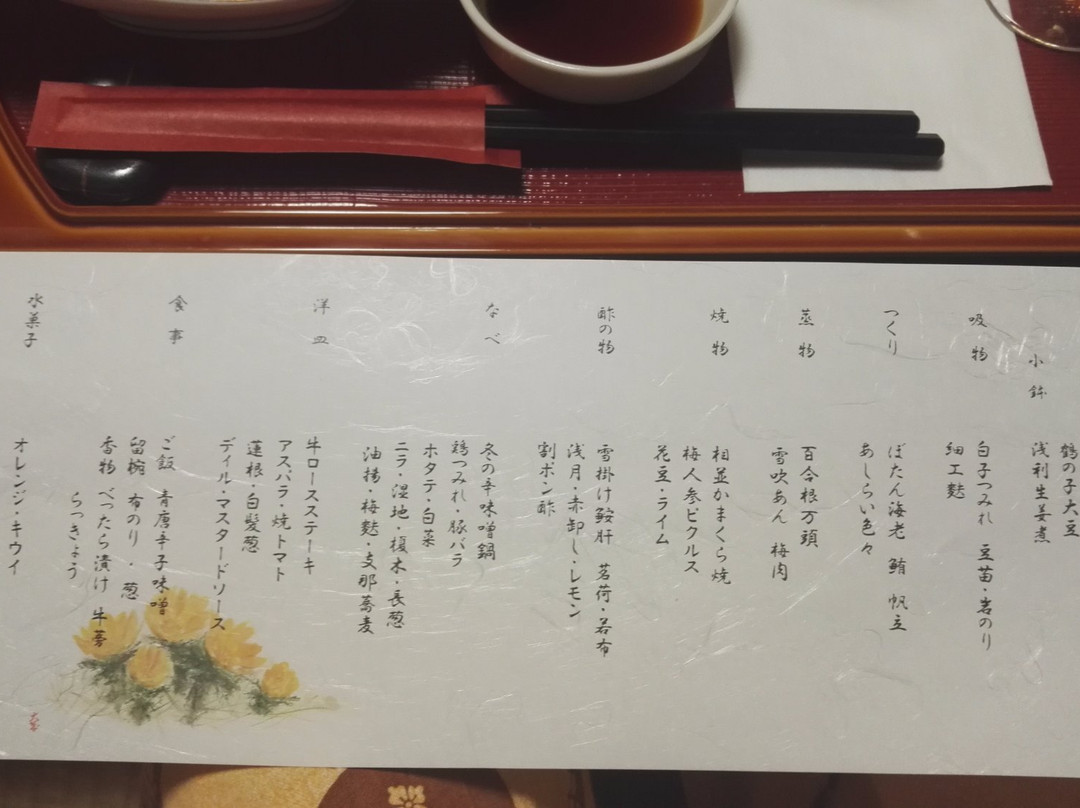 小鉢
鶴の子大豆
浅利生姜煮
吸物
白子つみれ 豆苗・岩のり
細工麩
つくり
ぼたん海老 鮪 帆立
あしらい色々
蒸物
百合根万頭
雪吹あん 梅肉
焼物
相並かまくら焼
梅人参ピクルス
花豆・ライム
酢の物
雪掛け鮟肝 茗荷・若布
浅月・赤卸し・レモン
割ポン酢
なべ
冬の辛味噌鍋
鶏つみれ・豚バラ
ホタテ・白菜
ニラ・湿地・榎木・長葱
油揚・梅麩・支那蕎麦
洋皿
牛ロースステーキ
アスパラ・焼トマト
蓮根・白髪葱
ディル・マスタードソース
食事
ご飯 青唐辛子味噌
留椀 布のり・葱
香物 べったら漬け 牛蒡
らっきょう
水菓子
オレンジ・キウイ